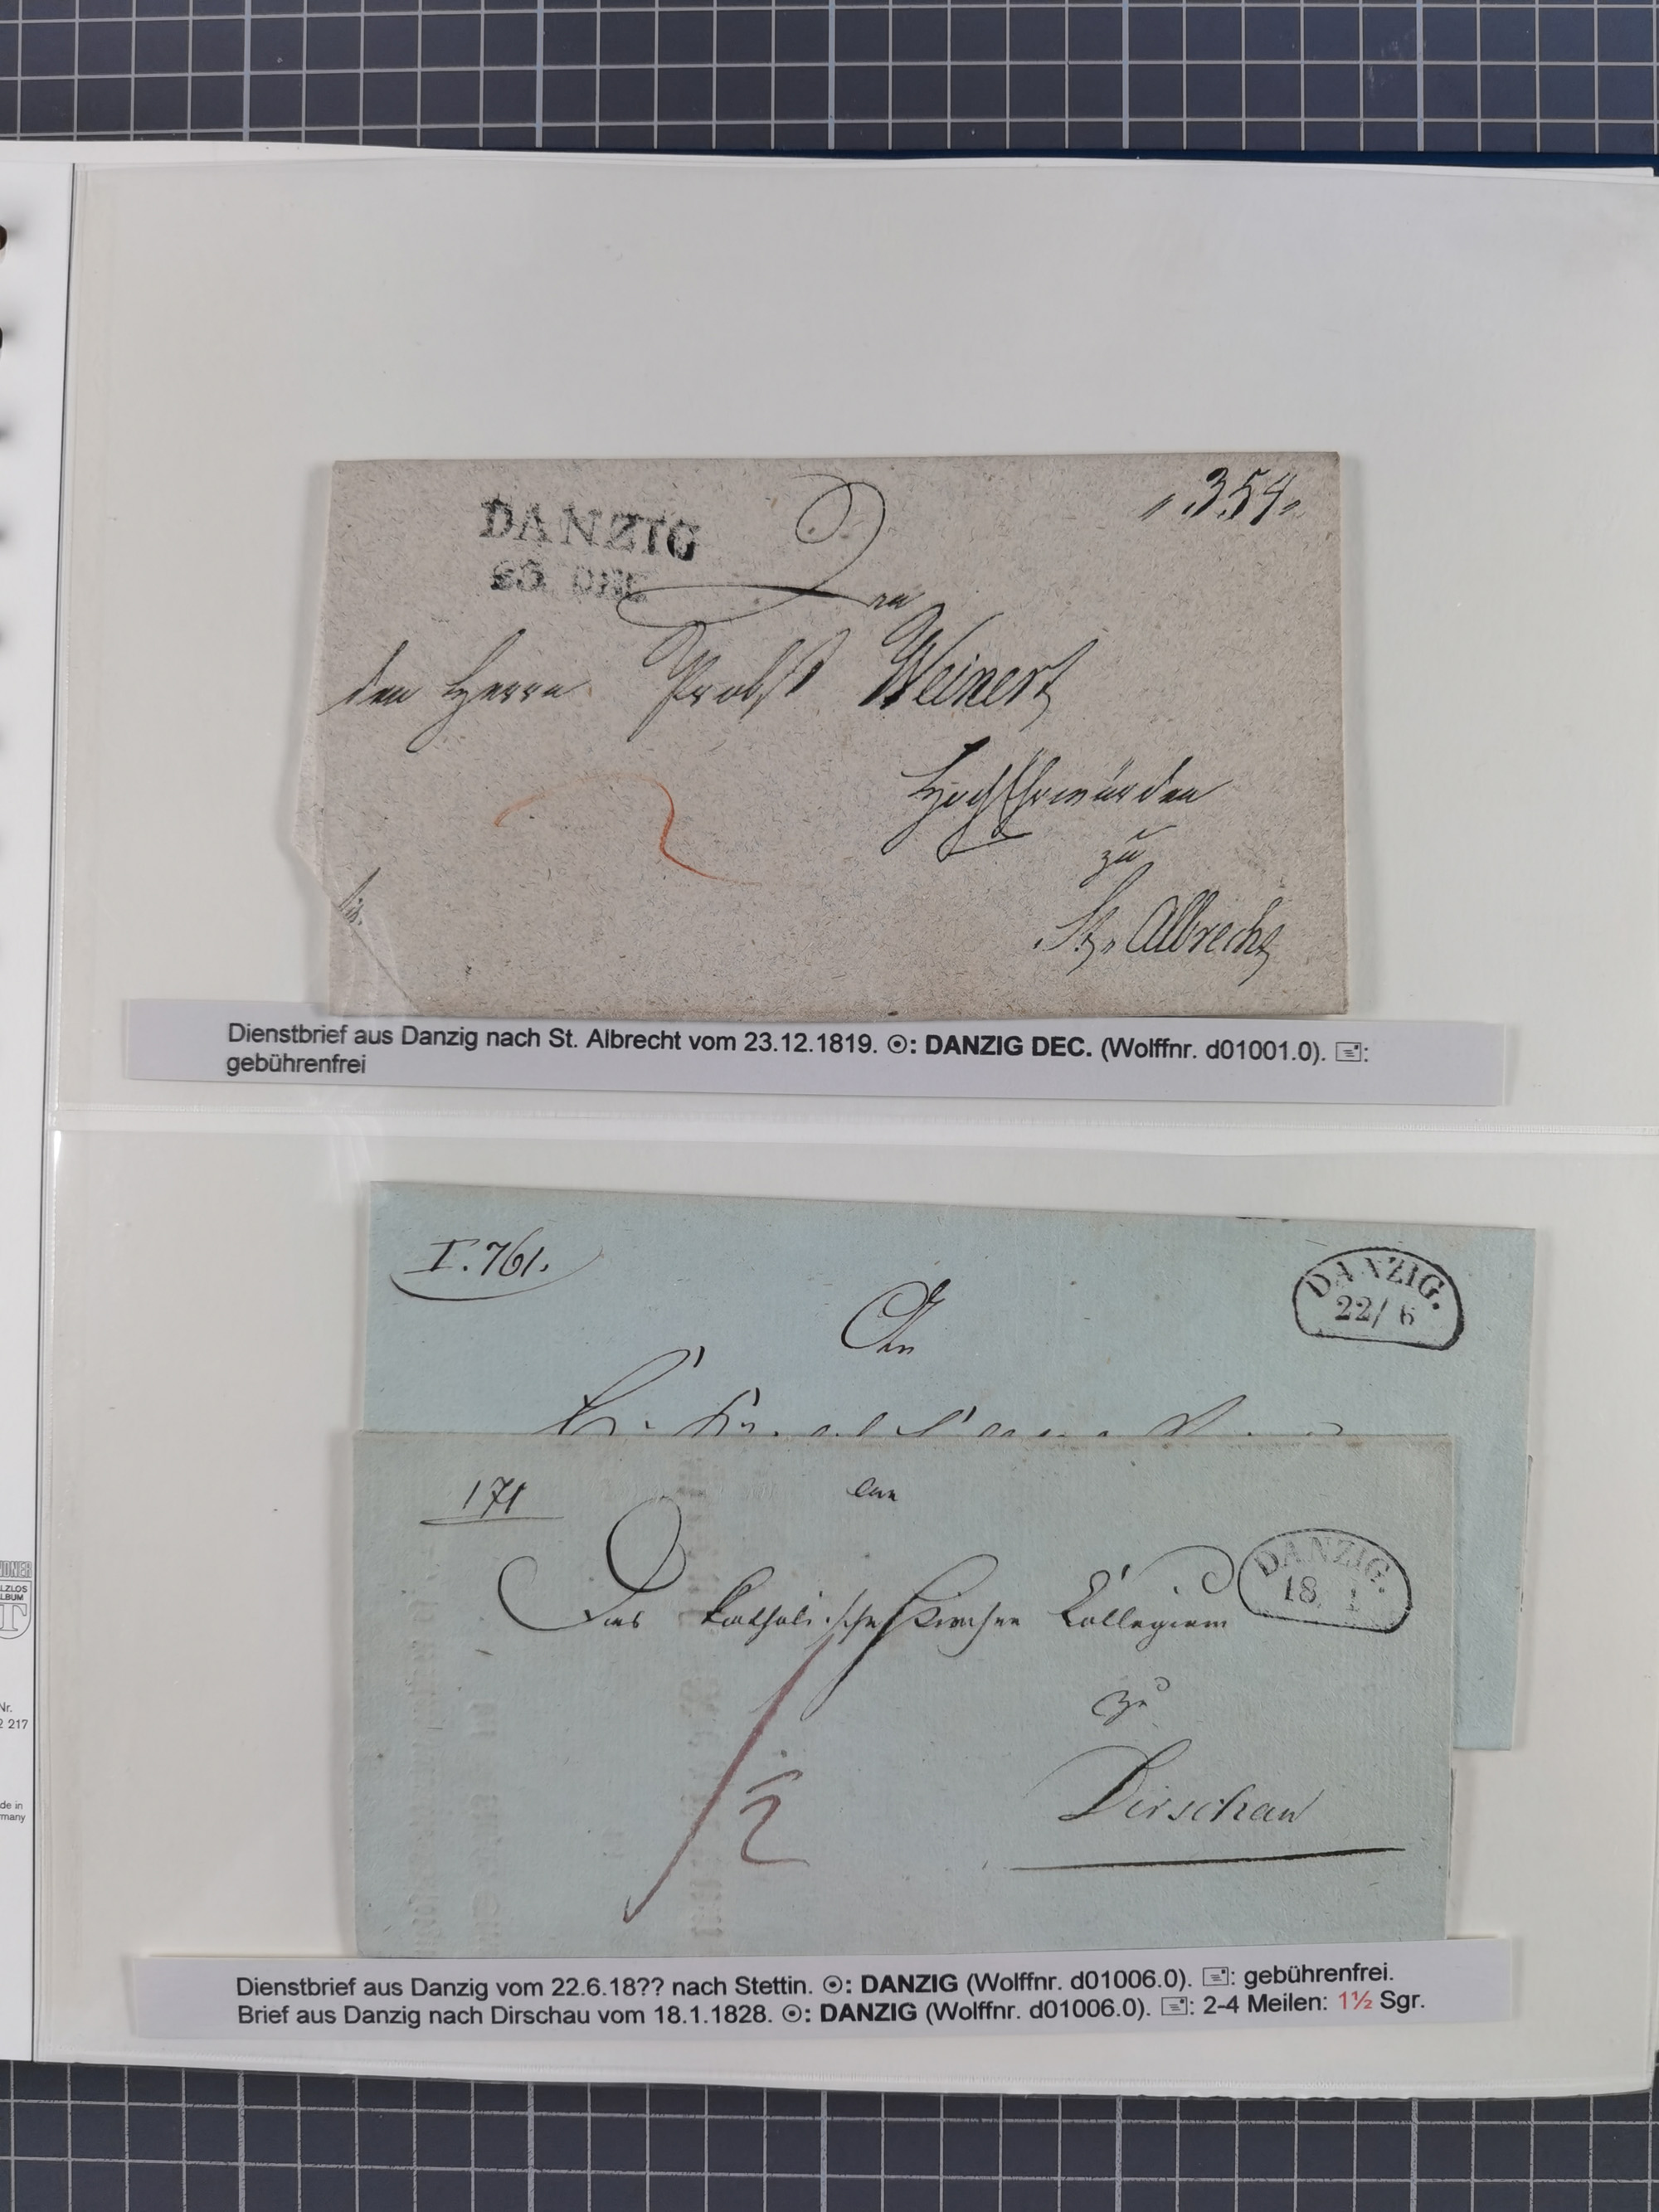 DANZIG
23 DEC
„ 354 „
An
den Herrn Probst Weinert
HochEhrwürden
zu
St. Albrecht
Dienstbrief aus Danzig nach St. Albrecht vom 23.12.1819. ☉: DANZIG DEC. (Wolffnr. d01001.0). 🖃:
gebührenfrei
I. 761.
DANZIG.
22/ 6
An
171
An
Das katholische Kirchen Collegium
DANZIG.
18 1
zu
Dirschau
1/2
Dienstbrief aus Danzig vom 22.6.18?? nach Stettin. ☉: DANZIG (Wolffnr. d01006.0). 🖃: gebührenfrei.
Brief aus Danzig nach Dirschau vom 18.1.1828. ☉: DANZIG (Wolffnr. d01006.0). 🖃: 2-4 Meilen: 1½ Sgr.
Nr.
2 217